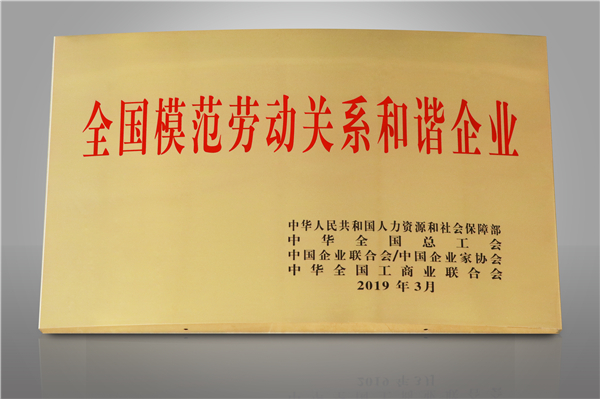 全国模范劳动关系和谐企业
中华人民共和国人力资源和社会保障部
中华全国总工会
中国企业联合会/中国企业家协会
中华全国工商业联合会
2019年3月